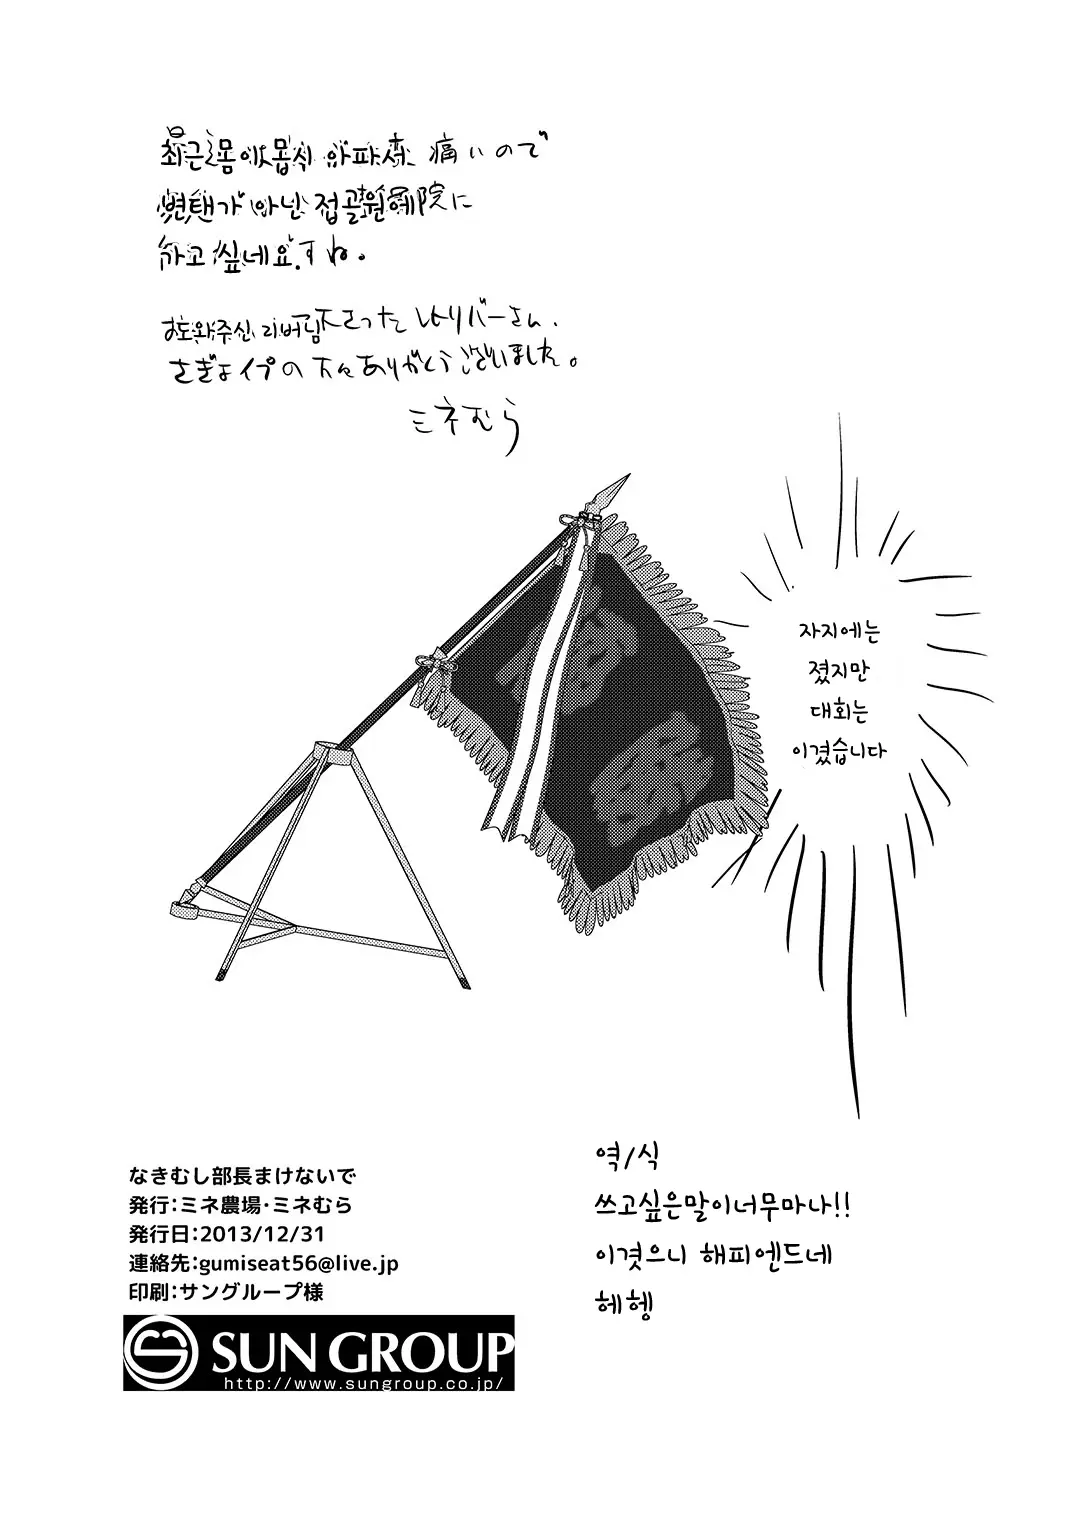 痛いので
접골원
院に
싶네요.すね。
レトリバーさん、
ありがとうございました。
ミネむら
자지에는
졌지만
대회는
이겼습니다
なきむし部長まけないで
発行：ミネ農場・ミネむら
発行日：2013/12/31
連絡先：gumiseat56@live.jp
印刷：サングループ様
SUN GROUP
http://www.sungroup.co.jp/
역/식
쓰고싶은말이너무마나!!
이겻으니 해피엔드네
헤헹